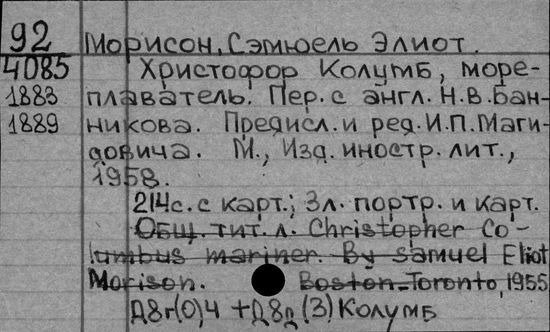 92 Морисон, Сэмюель Элиот.
4085 Христофор Колумб, море-
1883 плаватель. Пер. с англ. Н.В. Бан-
1889 никова. Предисл. и ред. И.П. Маги-
довича. М., Изд. иностр. лит.,
1958.
214с. с карт.; 3л. портр. и карт.
Общ. тит. л. Christopher Co-
lumbus mariner. By Samuel Eliot
Morison. Boston-Toronto, 1955
Д8г(0)4 + Д8д(3) Колумб